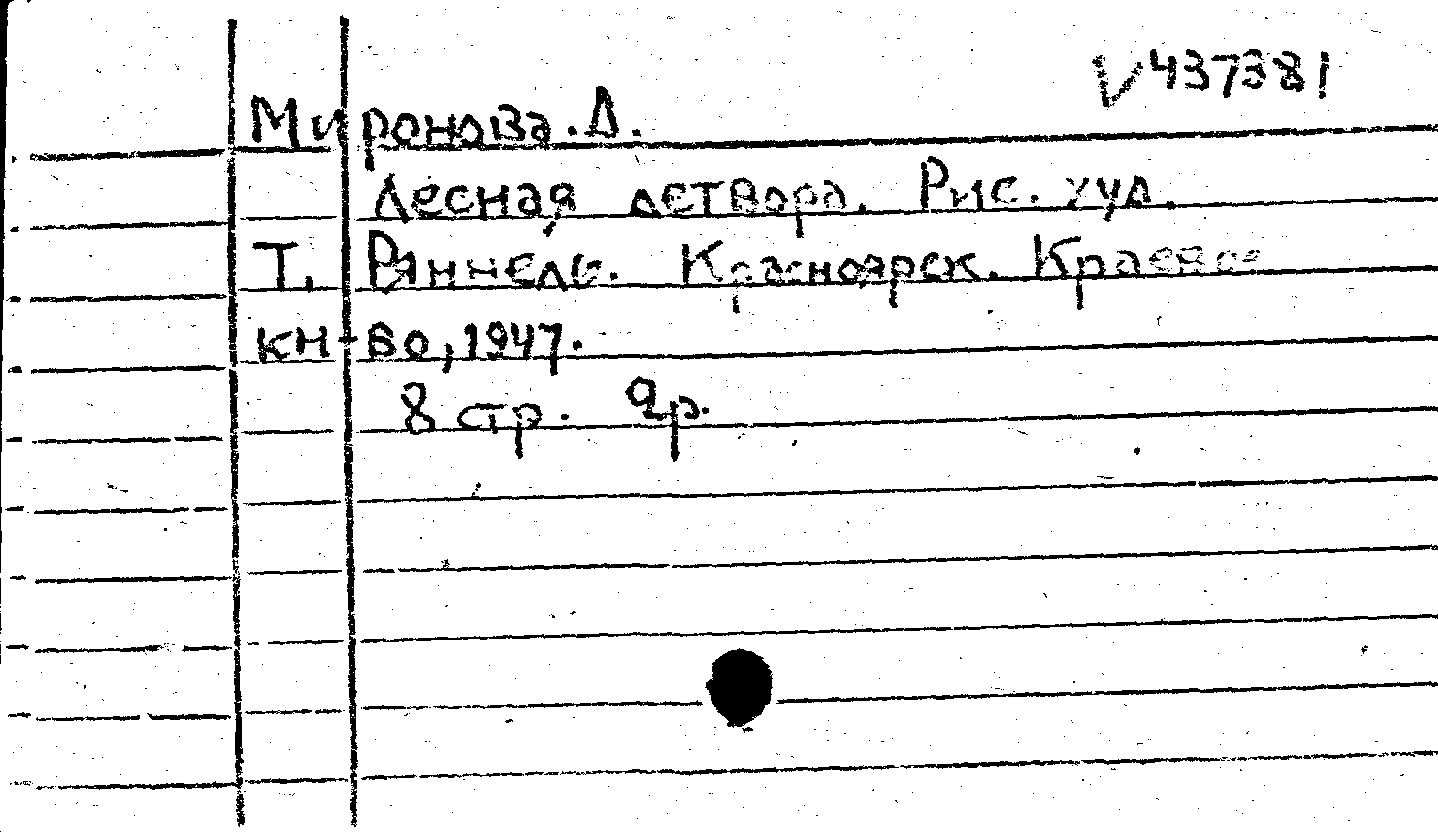 V437381
Миронова. Д.
Лесная детвора. Рис. худ.
Т. Ряннель. Красноярск. Краевое
кн-во, 1947.
8 стр. 2р.